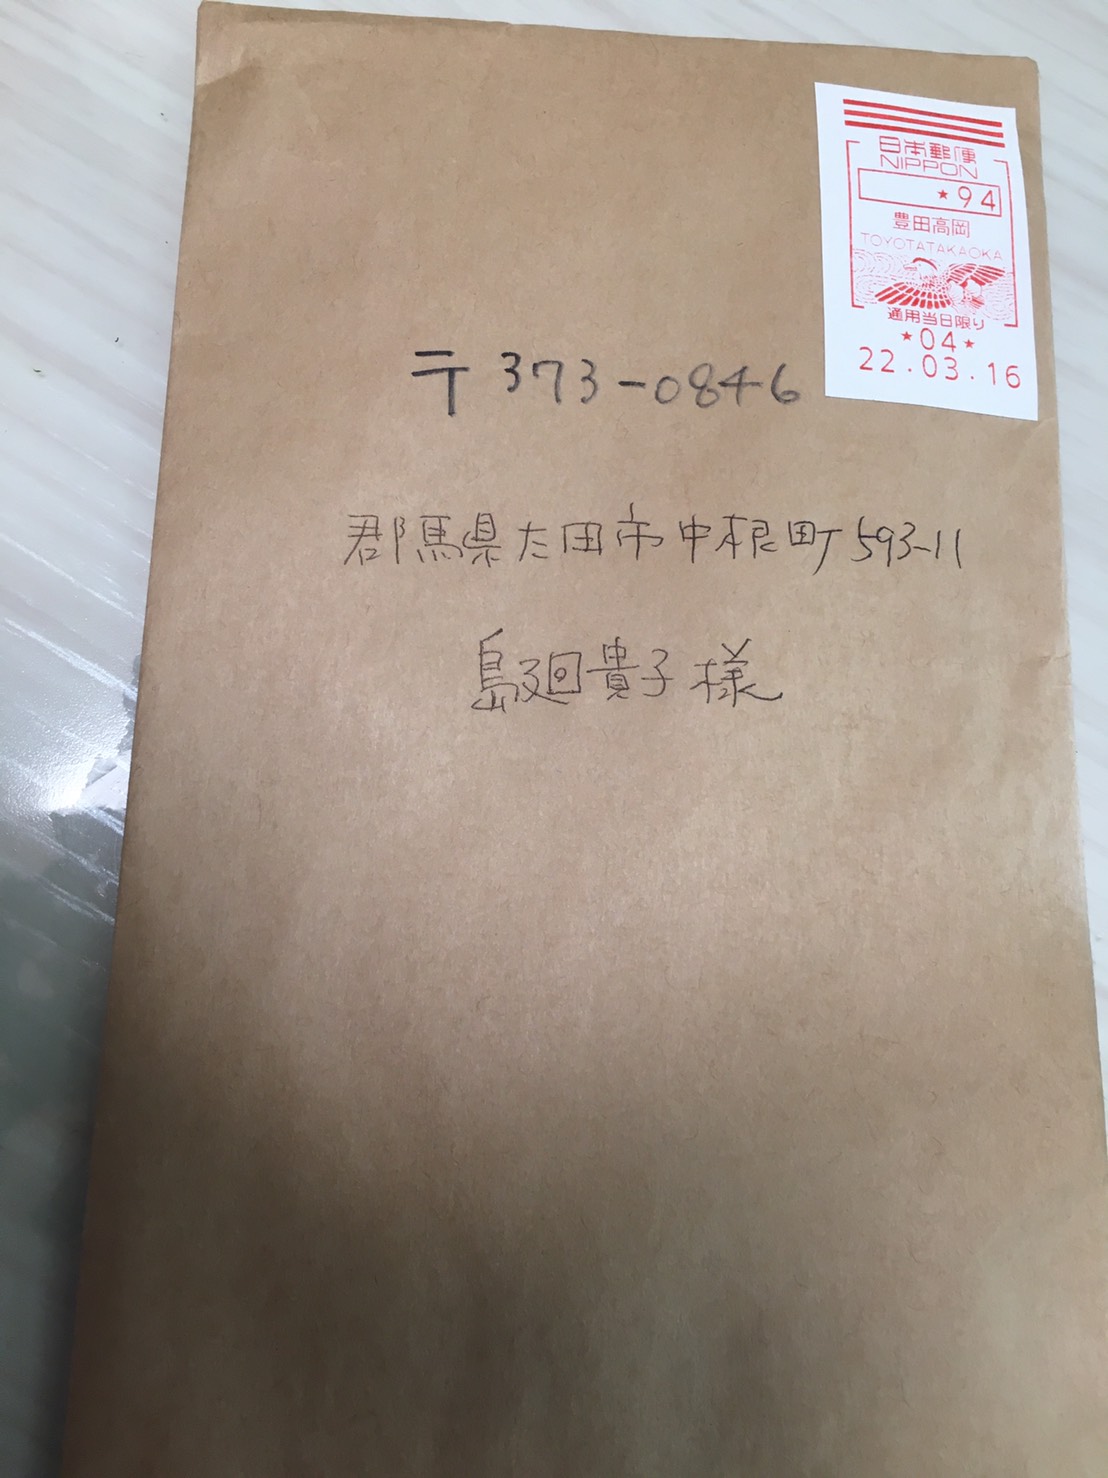 日本郵便
NIPPON
★94
豊田高岡
TOYOTATAKAOKA
通用当日限り
★04★
22.03.16
〒373-0846
郡馬県太田市中根町593-11
島廻貴子様